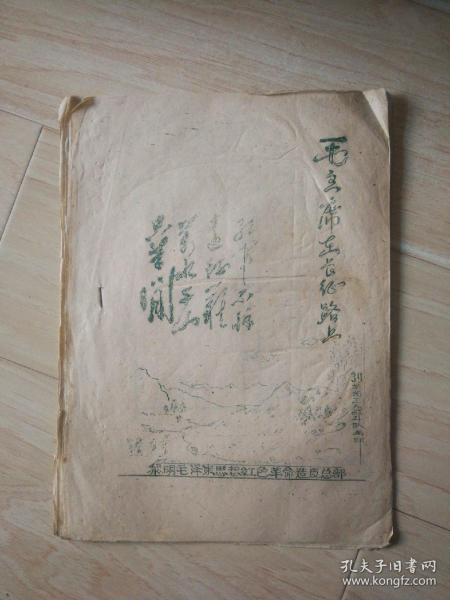 毛主席在长征路上
红军不怕
远征难
万水千山
只等闲
黎明毛泽东思想红色革命造反总部
孔夫子旧书网
www.kongfz.com